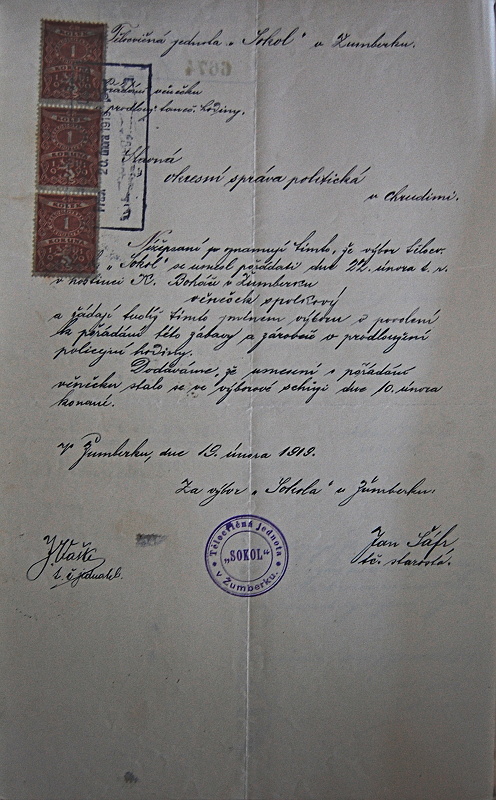 Tělocvičná jednota „Sokol" v Žumberku.
6674
pořádání věnečku
a prodlouž. taneč. hodiny.
Slavná
okresní správa politická
v Chrudimi.
Nížepsaní oznamují tímto, že výbor tělocv.
„Sokol" se usnesl pořádati dne 22. února t. r.
v hostinci K. Boháče v Žumberku
věneček spolkový
a žádají tudíž tímto jménem výboru o povolení
ku pořádání této zábavy a zároveň o prodloužení
policejní hodiny.
Dodáváme, že usnesení o pořádání
věnečku stalo se ve výborové schůzi dne 10. února
konané.
V Žumberku, dne 19. února 1919.
Za výbor „Sokola" v Žumberku.
J. Vašek
t. č. jednatel.
Jan Šafr
tč. starosta.
Tělocvičná jednota
„SOKOL"
v Žumberku.
KOLEK
1
KORUNA
KOLEK
1
KORUNA
KOLEK
1
KORUNA
20. února 1919